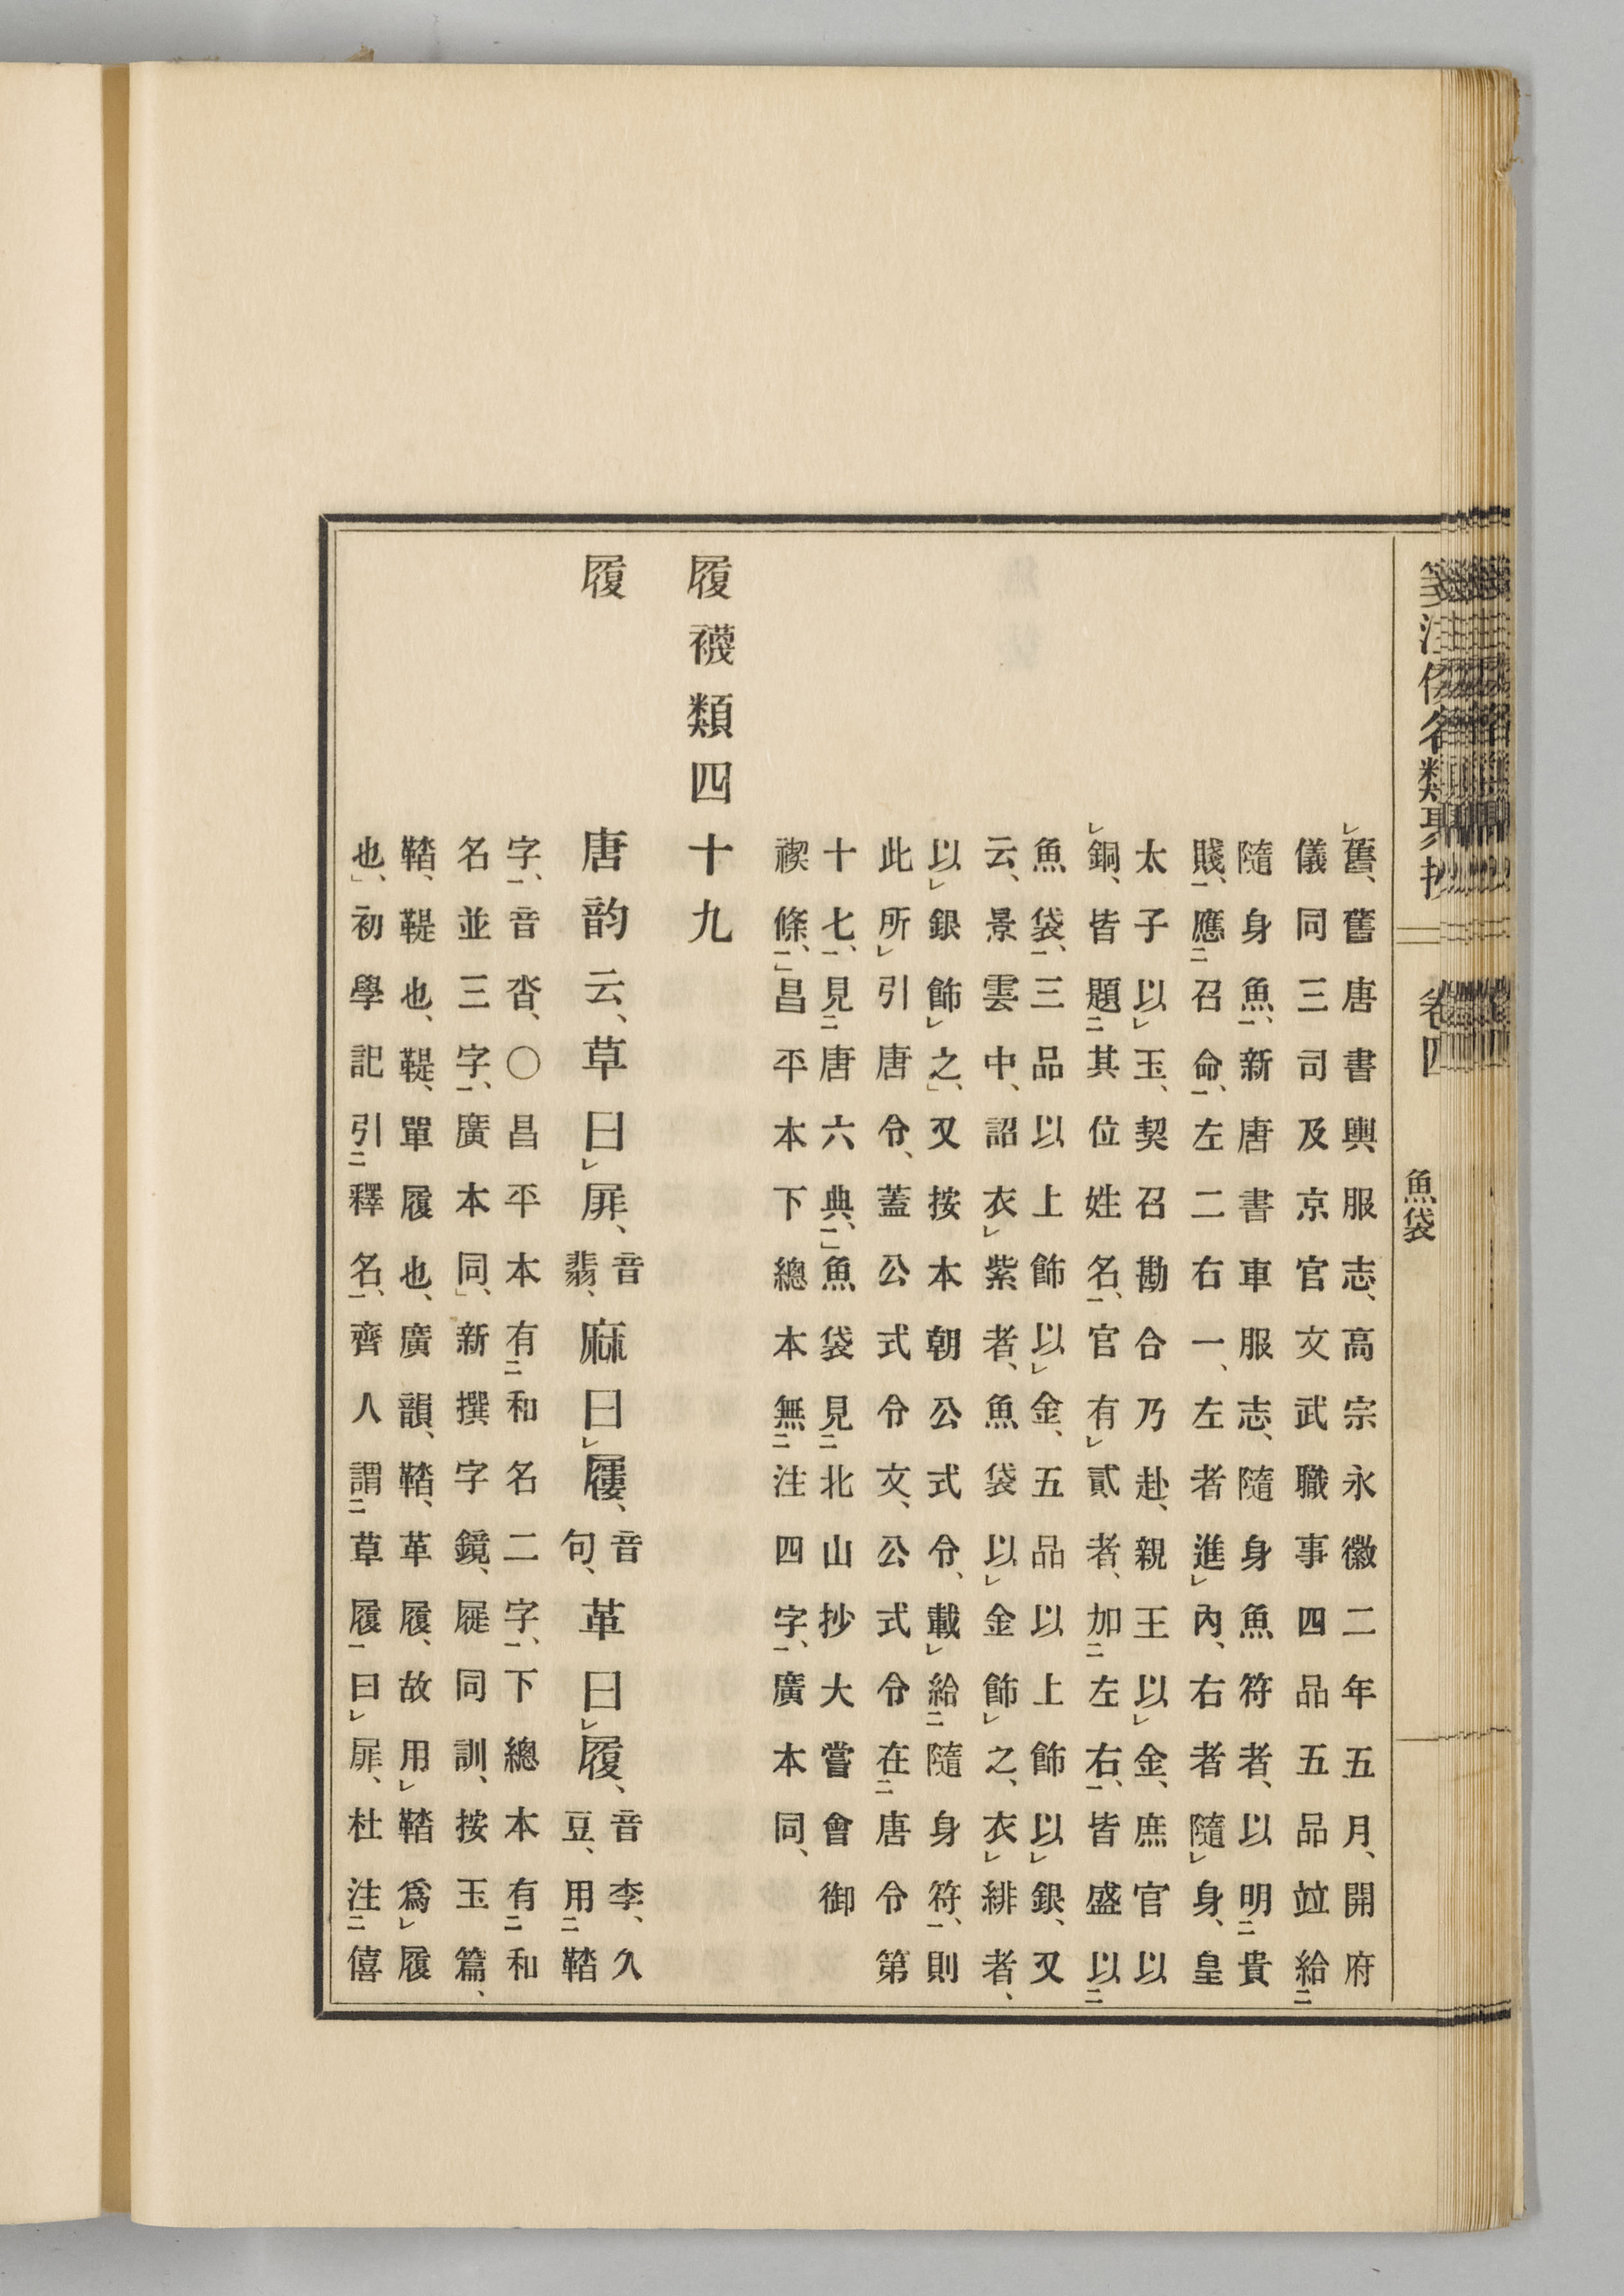 箋注倭名類聚抄 卷四
魚袋
舊、舊唐書輿服志、高宗永徽二年五月、開府
儀同三司及京官文武職事四品五品竝給
隨身魚、新唐書車服志、隨身魚符者、以明貴
賤、應召命、左二右一、左者進內、右者隨身、皇
太子以玉、契召勘合乃赴、親王以金、庶官以
銅、皆題其位姓名、官有貳者、加左右、皆盛以
魚袋、三品以上飾以金、五品以上飾以銀、又
云、景雲中、詔衣紫者、魚袋以金飾之、衣緋者、
以銀飾之、」又按本朝公式令、載給隨身符、則
此所引唐令、蓋公式令文、公式令在唐令第
十七、見唐六典、」魚袋見北山抄大嘗會御
禊條、」昌平本下總本無注四字、廣本同、
履襪類四十九
履
唐韵云、草曰屝、音翡、麻曰屨、音句、革曰履、音李、久豆、用鞜
字、音沓、〇昌平本有和名二字、下總本有和
名並三字、廣本同、」新撰字鏡、屣同訓、按玉篇、
鞜、鞮也、鞮、單履也、廣韻、鞜、革履、故用鞜爲履
也、」初學記引釋名、齊人謂草履曰屝、杜注僖